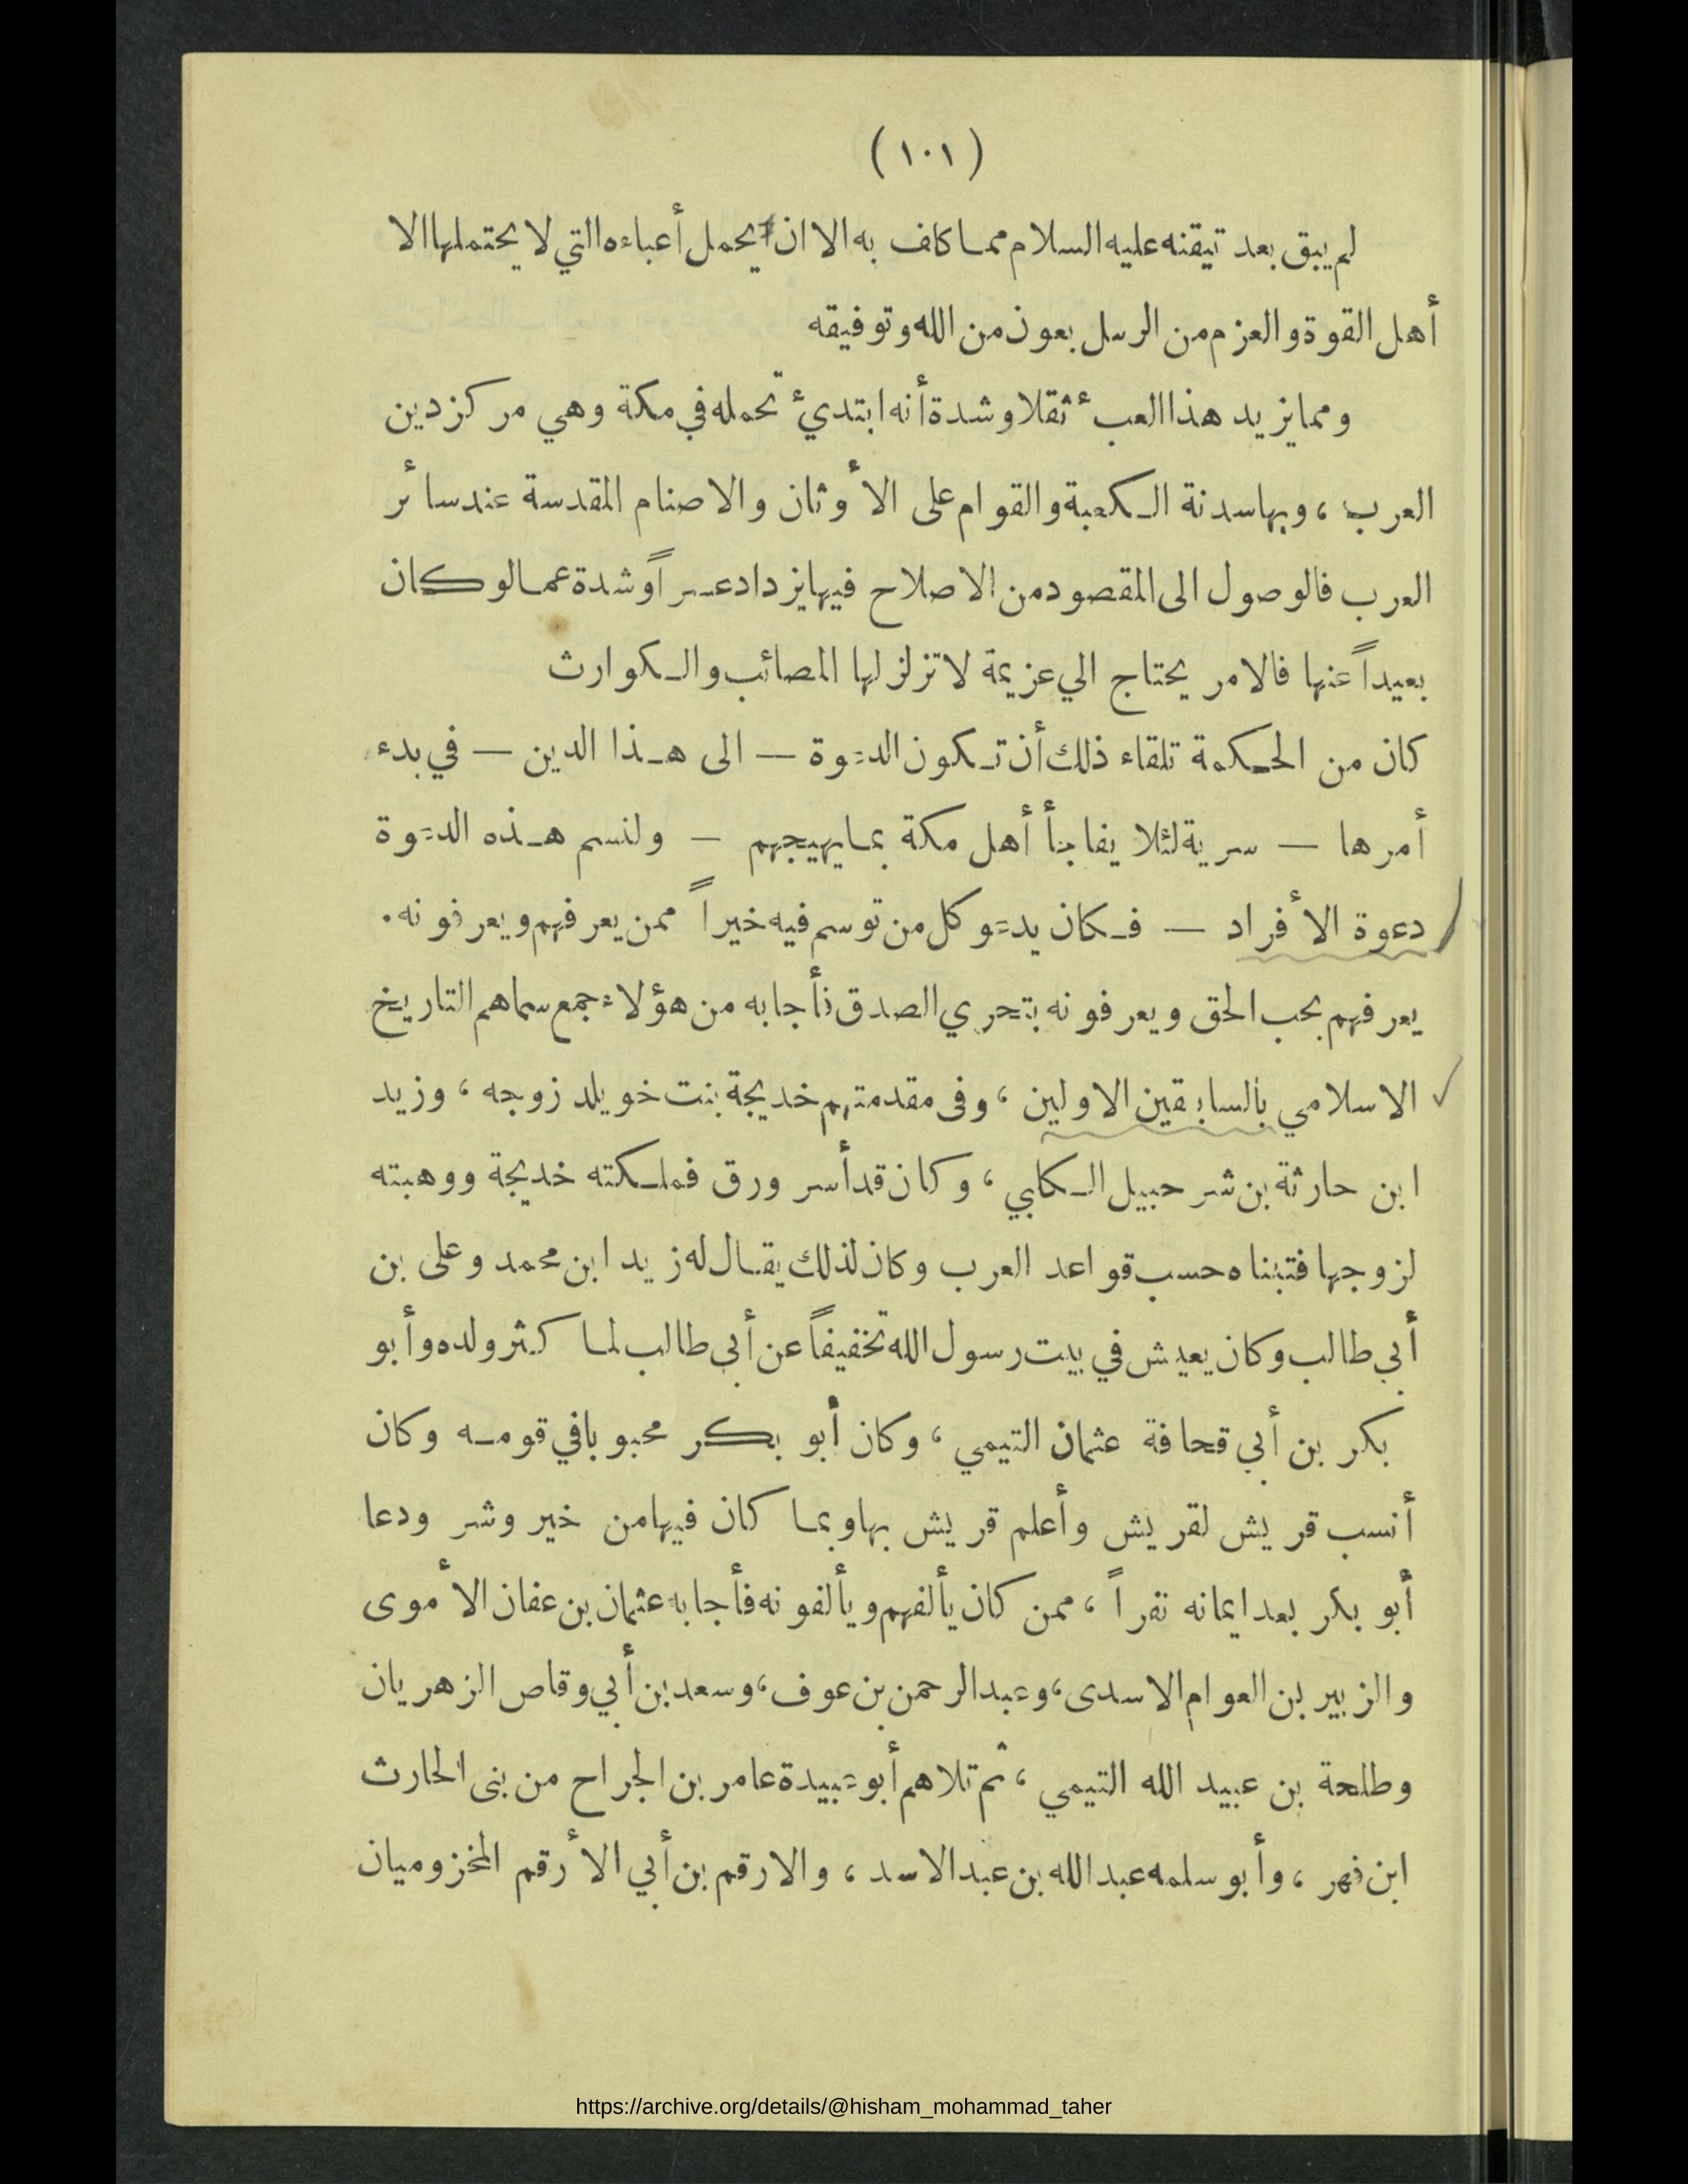 (١٠١)
لم يبق بعد تيقنه عليه السلام مما كاف به الا ان يحمل أعباءه التي لا يحتملها الا
أهل القوة والعزم من الرسل بعون من الله وتوفيقه
ومما يزيد هذا العبء ثقلا وشدة أنه ابتدئ تحمله في مكة وهي مركز دين
العرب ، وبها سدنة الكعبة والقوام على الأوثان والاصنام المقدسة عند سائر
العرب فالوصول الى المقصود من الاصلاح فيها يزداد عسراً وشدة عما لو كان
بعيداً عنها فالامر يحتاج الي عزيمة لا تزلزلها المصائب والكوارث
كان من الحكمة تلقاء ذلك أن تكون الدعوة — الى هذا الدين — في بدء
أمرها — سرية لئلا يفاجأ أهل مكة بما يهيجهم — ولنسم هذه الدعوة
دعوة الأفراد — فكان يدعو كل من توسم فيه خيراً ممن يعرفهم ويعرفونه.
يعرفهم بحب الحق ويعرفونه بتحري الصدق فأجابه من هؤلاء جمع سماهم التاريخ
الاسلامي بالسابقين الاولين ، وفى مقدمتهم خديجة بنت خويلد زوجه ، وزيد
ابن حارثة بن شرحبيل الكابي ، وكان قد أسر ورق فملكته خديجة ووهبته
لزوجها فتبناه حسب قواعد العرب وكان لذلك يقال له زيد ابن محمد وعلى بن
أبي طالب وكان يعيش في بيت رسول الله تخفيفاً عن أبي طالب لما كثر ولده وأبو
بكر بن أبي قحافة عثمان التيمي ، وكان أبو بكر محبوبا في قومه وكان
أنسب قريش لقريش وأعلم قريش بها وبما كان فيها من خير وشر ودعا
أبو بكر بعد ايمانه نفراً ، ممن كان يألفهم ويألفونه فأجابه عثمان بن عفان الأموى
والزبير بن العوام الاسدى، وعبد الرحمن بن عوف، وسعد بن أبي وقاص الزهريان
وطلحة بن عبيد الله التيمي ، ثم تلاهم أبو عبيدة عامر بن الجراح من بنى الحارث
ابن فهر ، وأبو سلمه عبد الله بن عبد الاسد ، والارقم بن أبي الأرقم المخزوميان
https://archive.org/details/@hisham_mohammad_taher